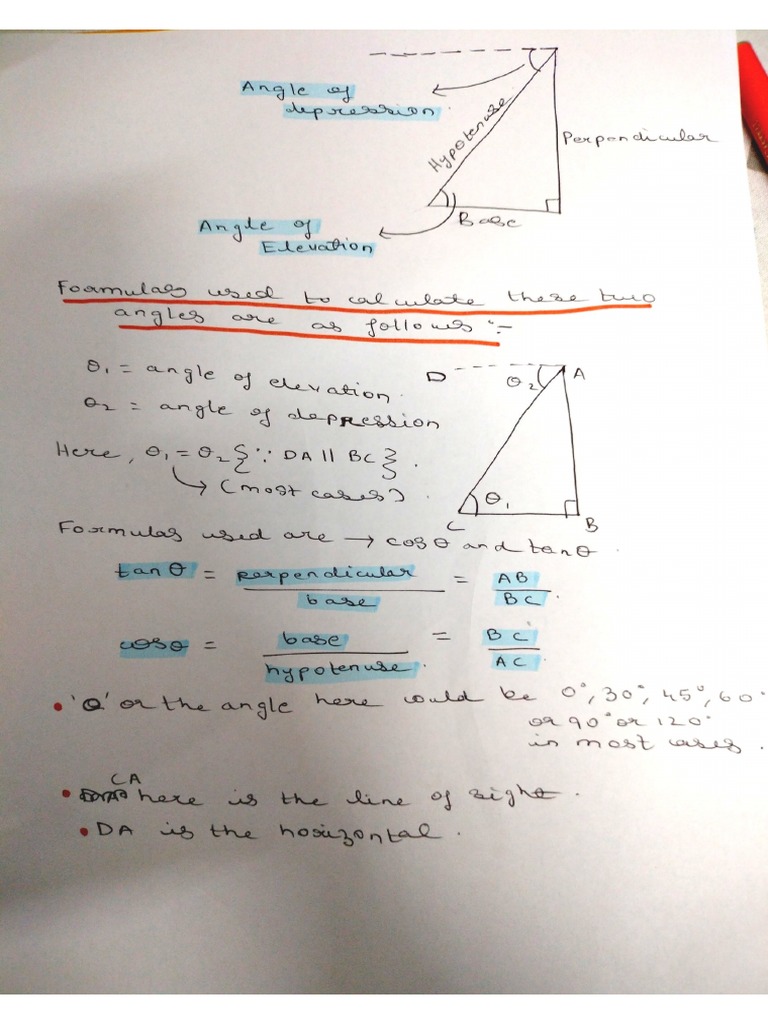 Angle of
depression.
Hypotenuse
Perpendicular
Base
Angle of
Elevation
Formulas used to calculate these two
angles are as follows :-
θ1 = angle of elevation.
θ2 = angle of depression
D
θ2
A
Here, θ1 = θ2 {∵ DA || BC}.
↳ (most cases).
θ1
C
B
Formulas used are → cosθ and tanθ.
tanθ = perpendicular / base = AB / BC.
cosθ = base / hypotenuse. = BC / AC.
• 'θ' or the angle here could be 0°, 30°, 45°, 60°
or 90° or 120°
in most cases.
• CA here is the line of sight.
• DA is the horizontal.